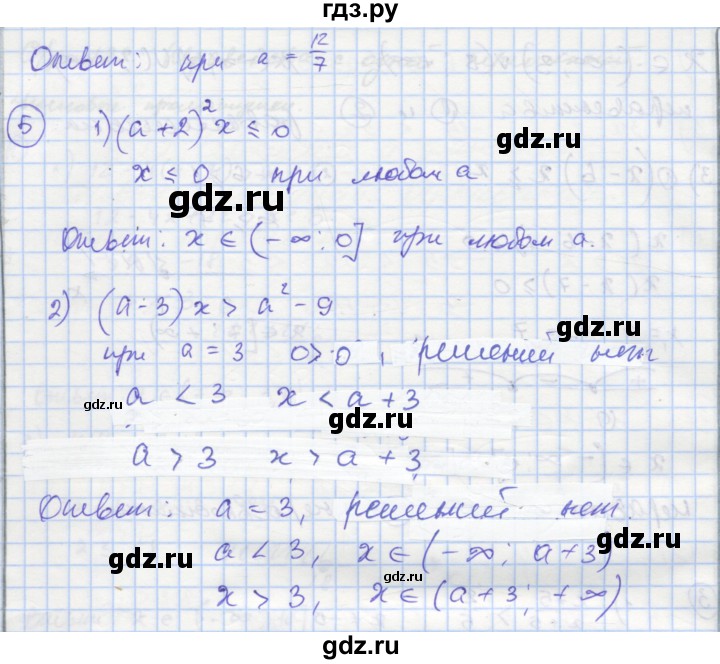 гдз.ру
Ответ: при a = 12/7
5 1) (a+2)² x ≤ 0
x ≤ 0 при любом a
Ответ: x ∈ (-∞; 0] при любом a.
2) (a-3) x > a² - 9
при a = 3 0>0, решений нет
a < 3 x < a + 3
a > 3 x > a + 3
Ответ: a = 3, решений нет
a < 3, x ∈ (-∞; a+3)
x > 3, x ∈ (a+3; +∞)
gdz.ru
gdz.ru
gdz.ru
gdz.ru
gdz.ru
gdz.ru
gdz.ru
gdz.ru
gdz.ru
gdz.ru
gdz.ru